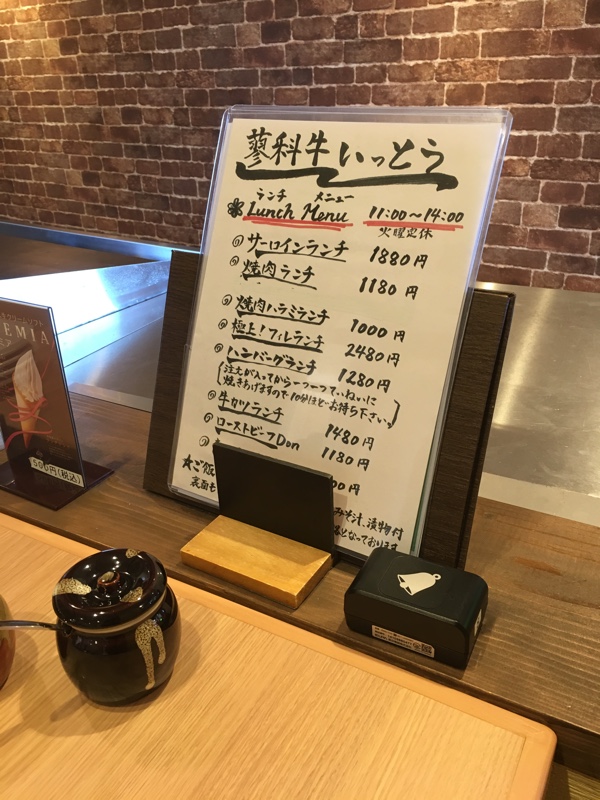 蓼科牛いっとう
ランチ メニュー
Lunch Menu 11:00～14:00
火曜定休
① サーロインランチ 1880円
② 焼肉ランチ 1180円
③ 焼肉ハラミランチ 1000円
④ 極上!フィレランチ 2480円
⑤ ハンバーグランチ 1280円
(注文が入ってから一つ一つていねいに
焼きあげますので10分ほどお待ち下さい。)
⑥ 牛カツランチ 1480円
⑦ ローストビーフDon 1180円
00円
★ご飯 みそ汁、漬物付
裏面も となっております
EMIA
500円(税込)